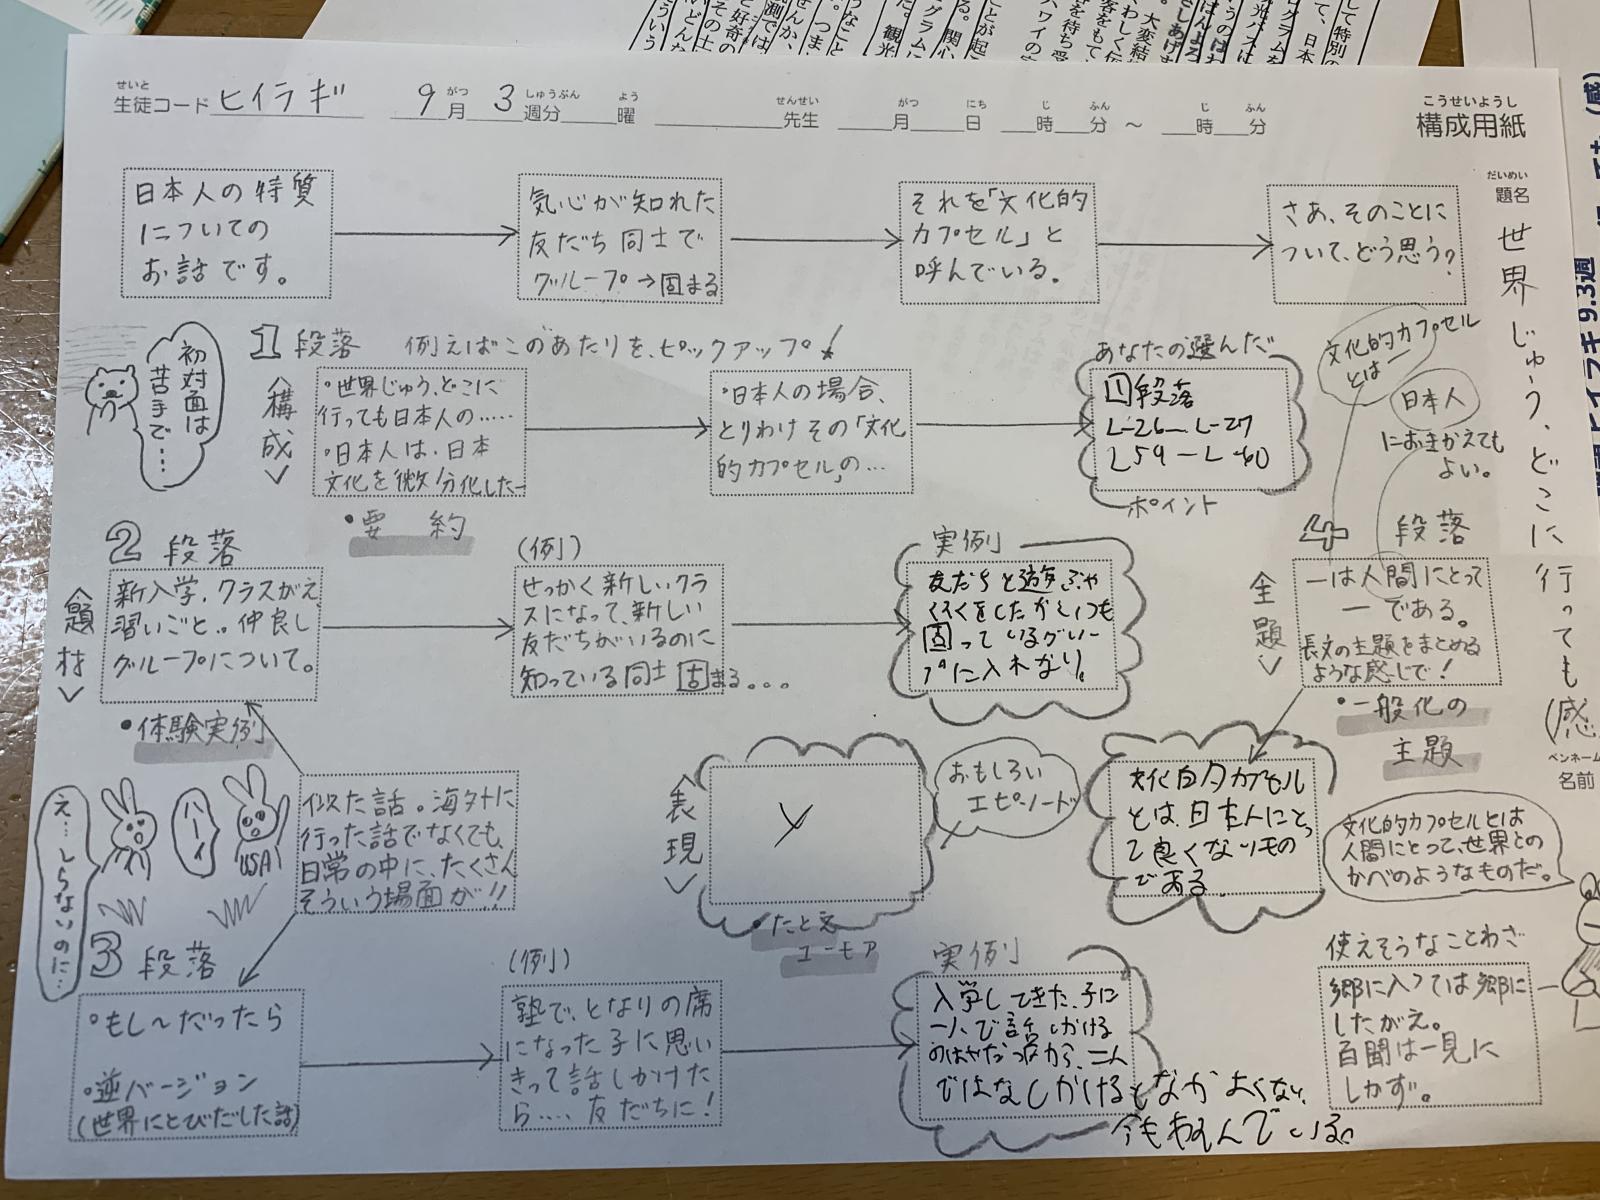 生徒コード ヒイラギ 9月 3週分 曜 先生 月 日 時 分 ～ 時 分
せいと がつ しゅうぶん よう せんせい がつ にち じ ふん じ ふん
こうせいようし
構成用紙
だいめい
題名
世界じゅう、どこに行っても(感
ペンネーム
名前
日本人の特質
についての
お話です。
気心が知れた
友だち同士で
グループ→固まる
それを「文化的
カプセル」と
呼んでいる。
さあ、そのことに
ついて、どう思う?
初対面は
苦手で…
1段落 例えばこのあたりを、ピックアップ!
<構成>
・世界じゅう、どこに
行っても日本人の……
・日本人は、日本
文化を微分化した―
・要約
・日本人の場合、
とりわけその「文化
的カプセル」の…
あなたの選んだ
1段落
L-26―L-27
L59―L-60
ポイント
文化的カプセル
とは―
日本人
におきかえても
よい。
2段落
<題材>
新入学、クラスがえ、
習いごと‥仲良し
グループについて。
・体験実例
(例)
せっかく新しいクラ
スになって、新しい
友だちがいるのに
知っている同士固まる。。。
実例
友だちと遊ぶや
くそくをしたがいつも
固っているグルー
プに入れない。
4段落
<主題>
―は人間にとって
―である。
長文の主題をまとめる
ような感じで!
・一般化の
主題
文化的カプセル
とは、日本人にとっ
て良くないもの
である。
文化的カプセルとは
人間にとって、世界との
かべのようなものだ。
え…しらないのに…
ハーイ
USA
似た話。海外に
行った話でなくても、
日常の中に、たくさん
そういう場面が!!
<表現>
おもしろい
エピソード
・たとえ
ユーモア
3段落
・もし～だったら
・逆バージョン
(世界にとびだした話)
(例)
塾で、となりの席
になった子に思い
きって話しかけた
ら…、友だちに!
実例
入学してきた、子に
一人で話しかける
から、二人
ではなしかけると なかよくなり、
今もあそんでいる。
使えそうなことわざ
郷に入っては郷に
したがえ。
百聞は一見に
しかず。